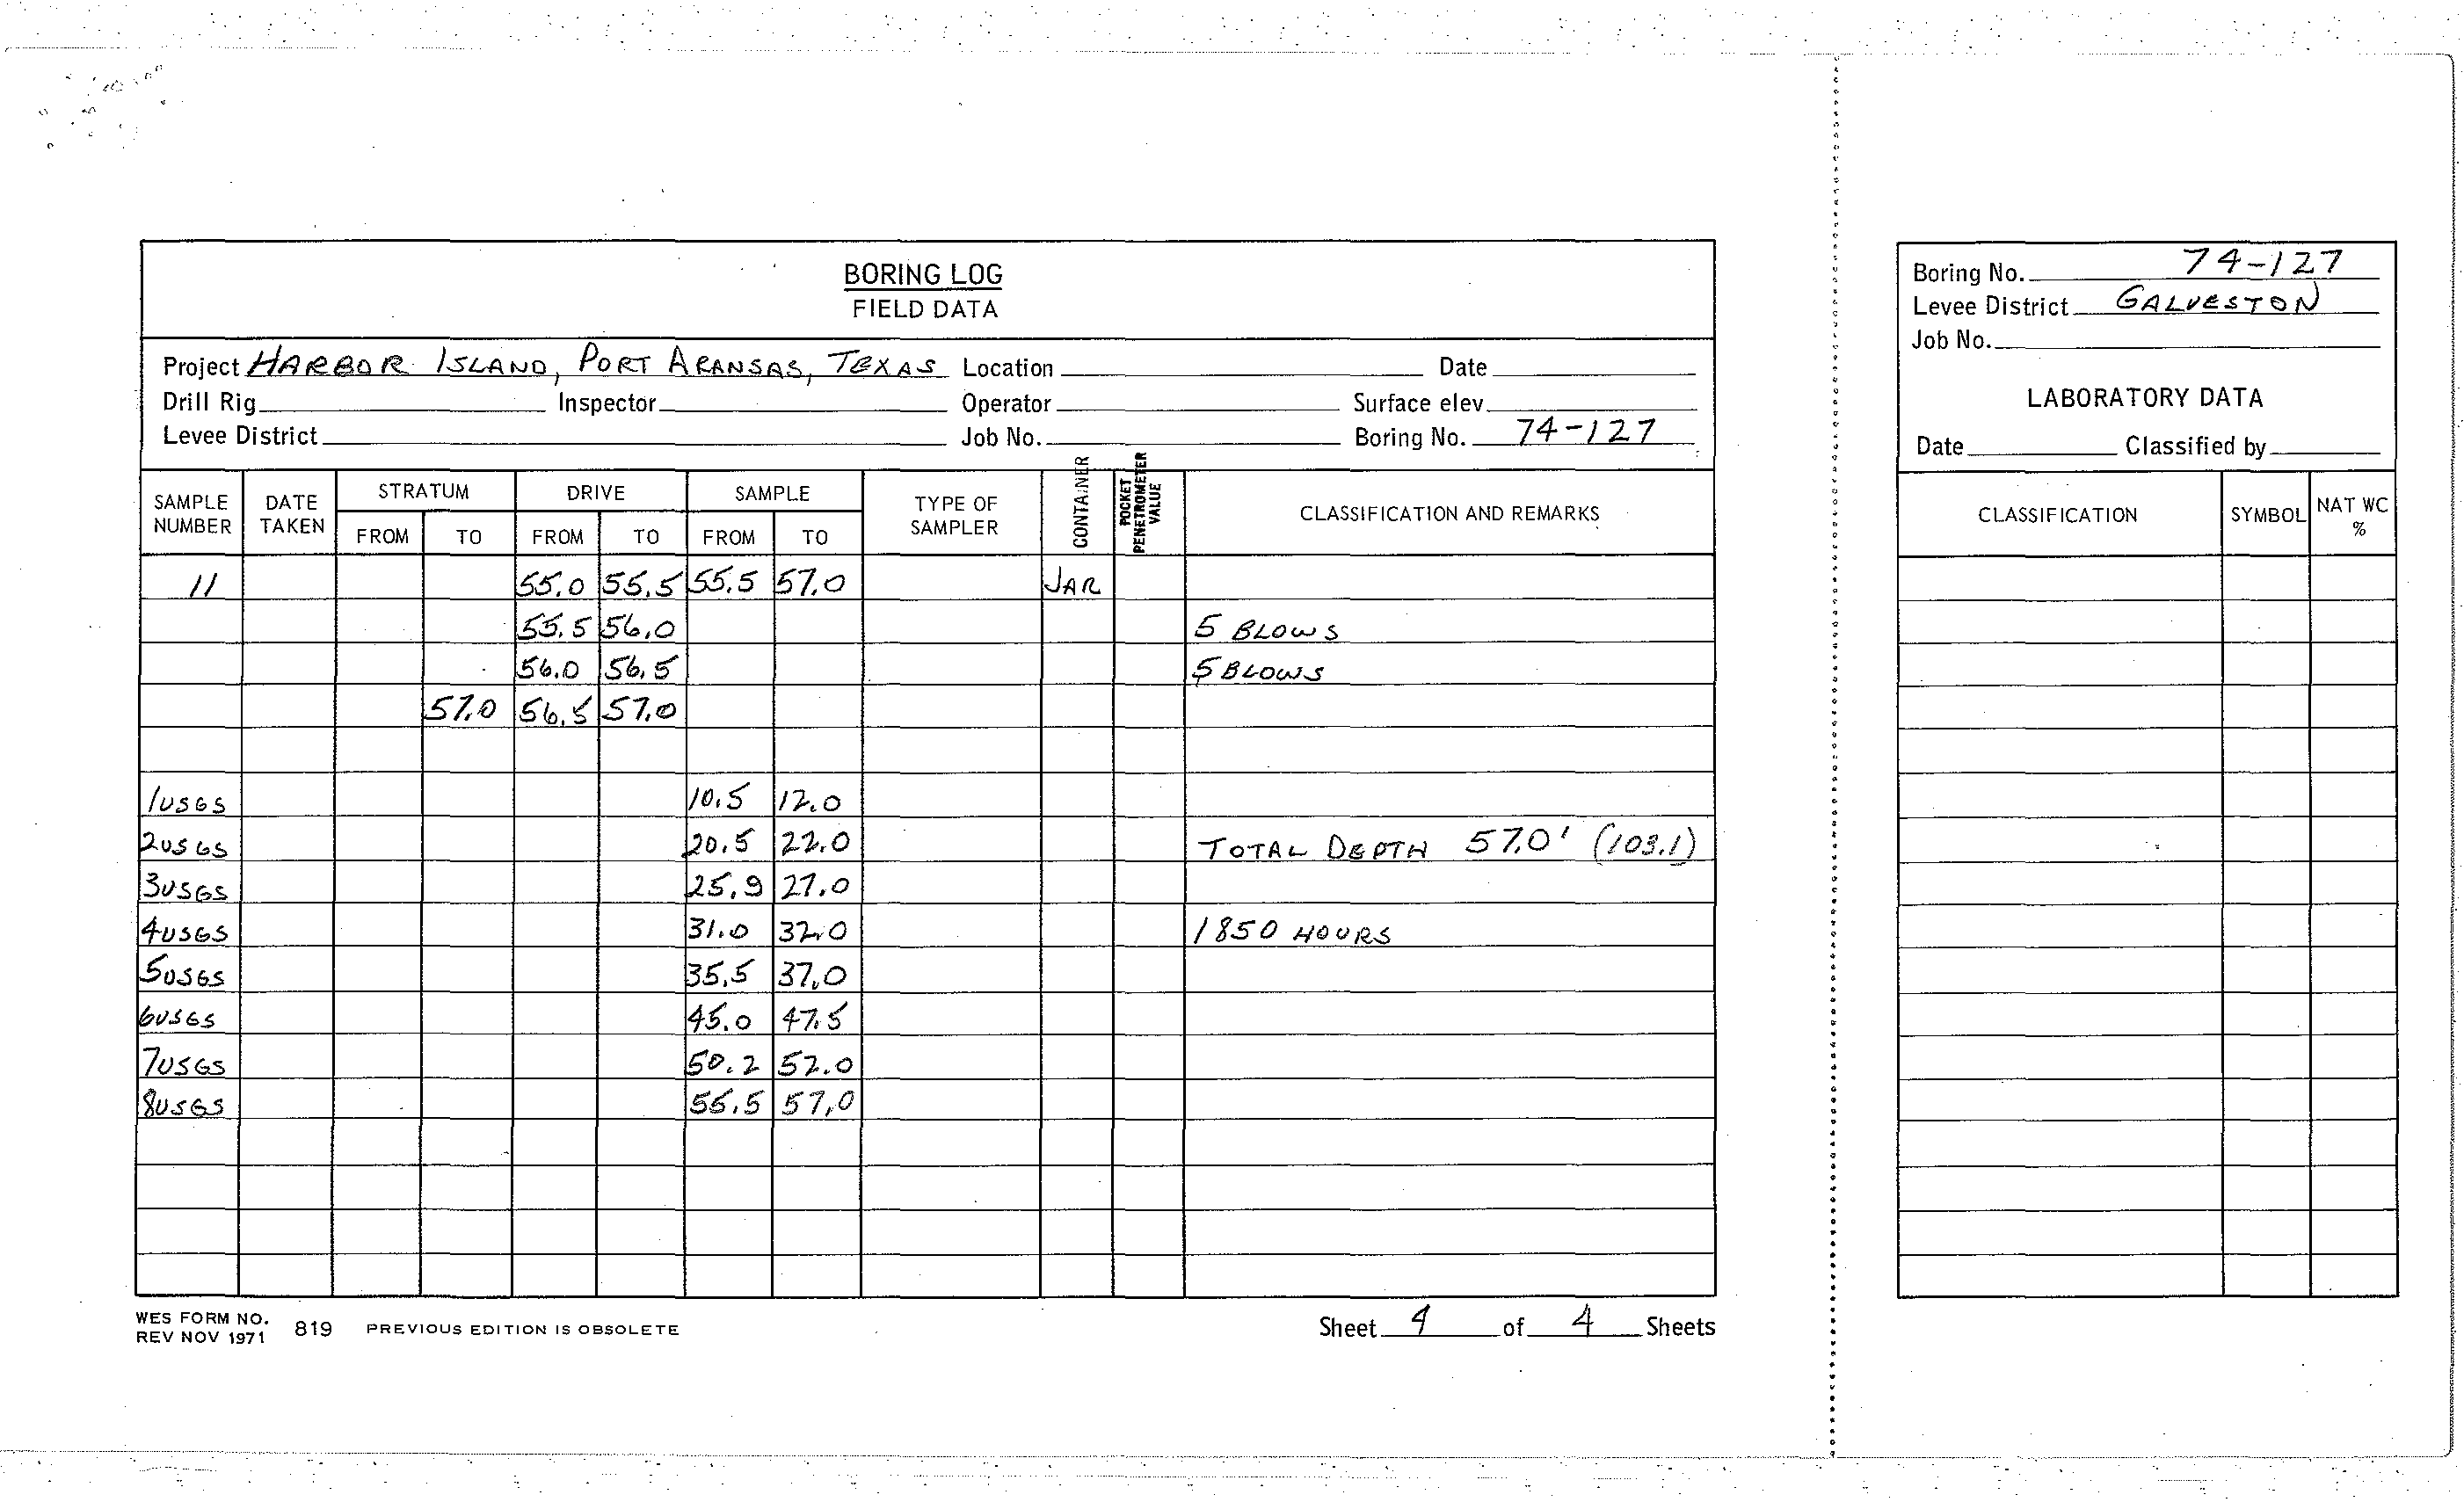 BORING LOG
FIELD DATA
Project HARBOR ISLAND, PORT ARANSAS, TEXAS Location Date
Drill Rig Inspector Operator Surface elev.
Levee District Job No. Boring No. 74-127
SAMPLE NUMBER DATE TAKEN STRATUM FROM TO DRIVE FROM TO SAMPLE FROM TO TYPE OF SAMPLER CONTAINER POCKET PENETROMETER VALUE CLASSIFICATION AND REMARKS
11 55.0 55.5 55.5 57.0 JAR
55.5 56.0 5 BLOWS
56.0 56.5 5 BLOWS
57.0 56.5 57.0
1USGS 10.5 12.0
2USGS 20.5 22.0 TOTAL DEPTH 57.0' (103.1)
3USGS 25.9 27.0
4USGS 31.0 32.0 1850 HOURS
5USGS 35.5 37.0
6USGS 45.0 47.5
7USGS 50.2 52.0
8USGS 55.5 57.0
WES FORM NO. 819 PREVIOUS EDITION IS OBSOLETE
REV NOV 1971
Sheet 4 of 4 Sheets
Boring No. 74-127
Levee District GALVESTON
Job No.
LABORATORY DATA
Date Classified by
CLASSIFICATION SYMBOL NAT WC %